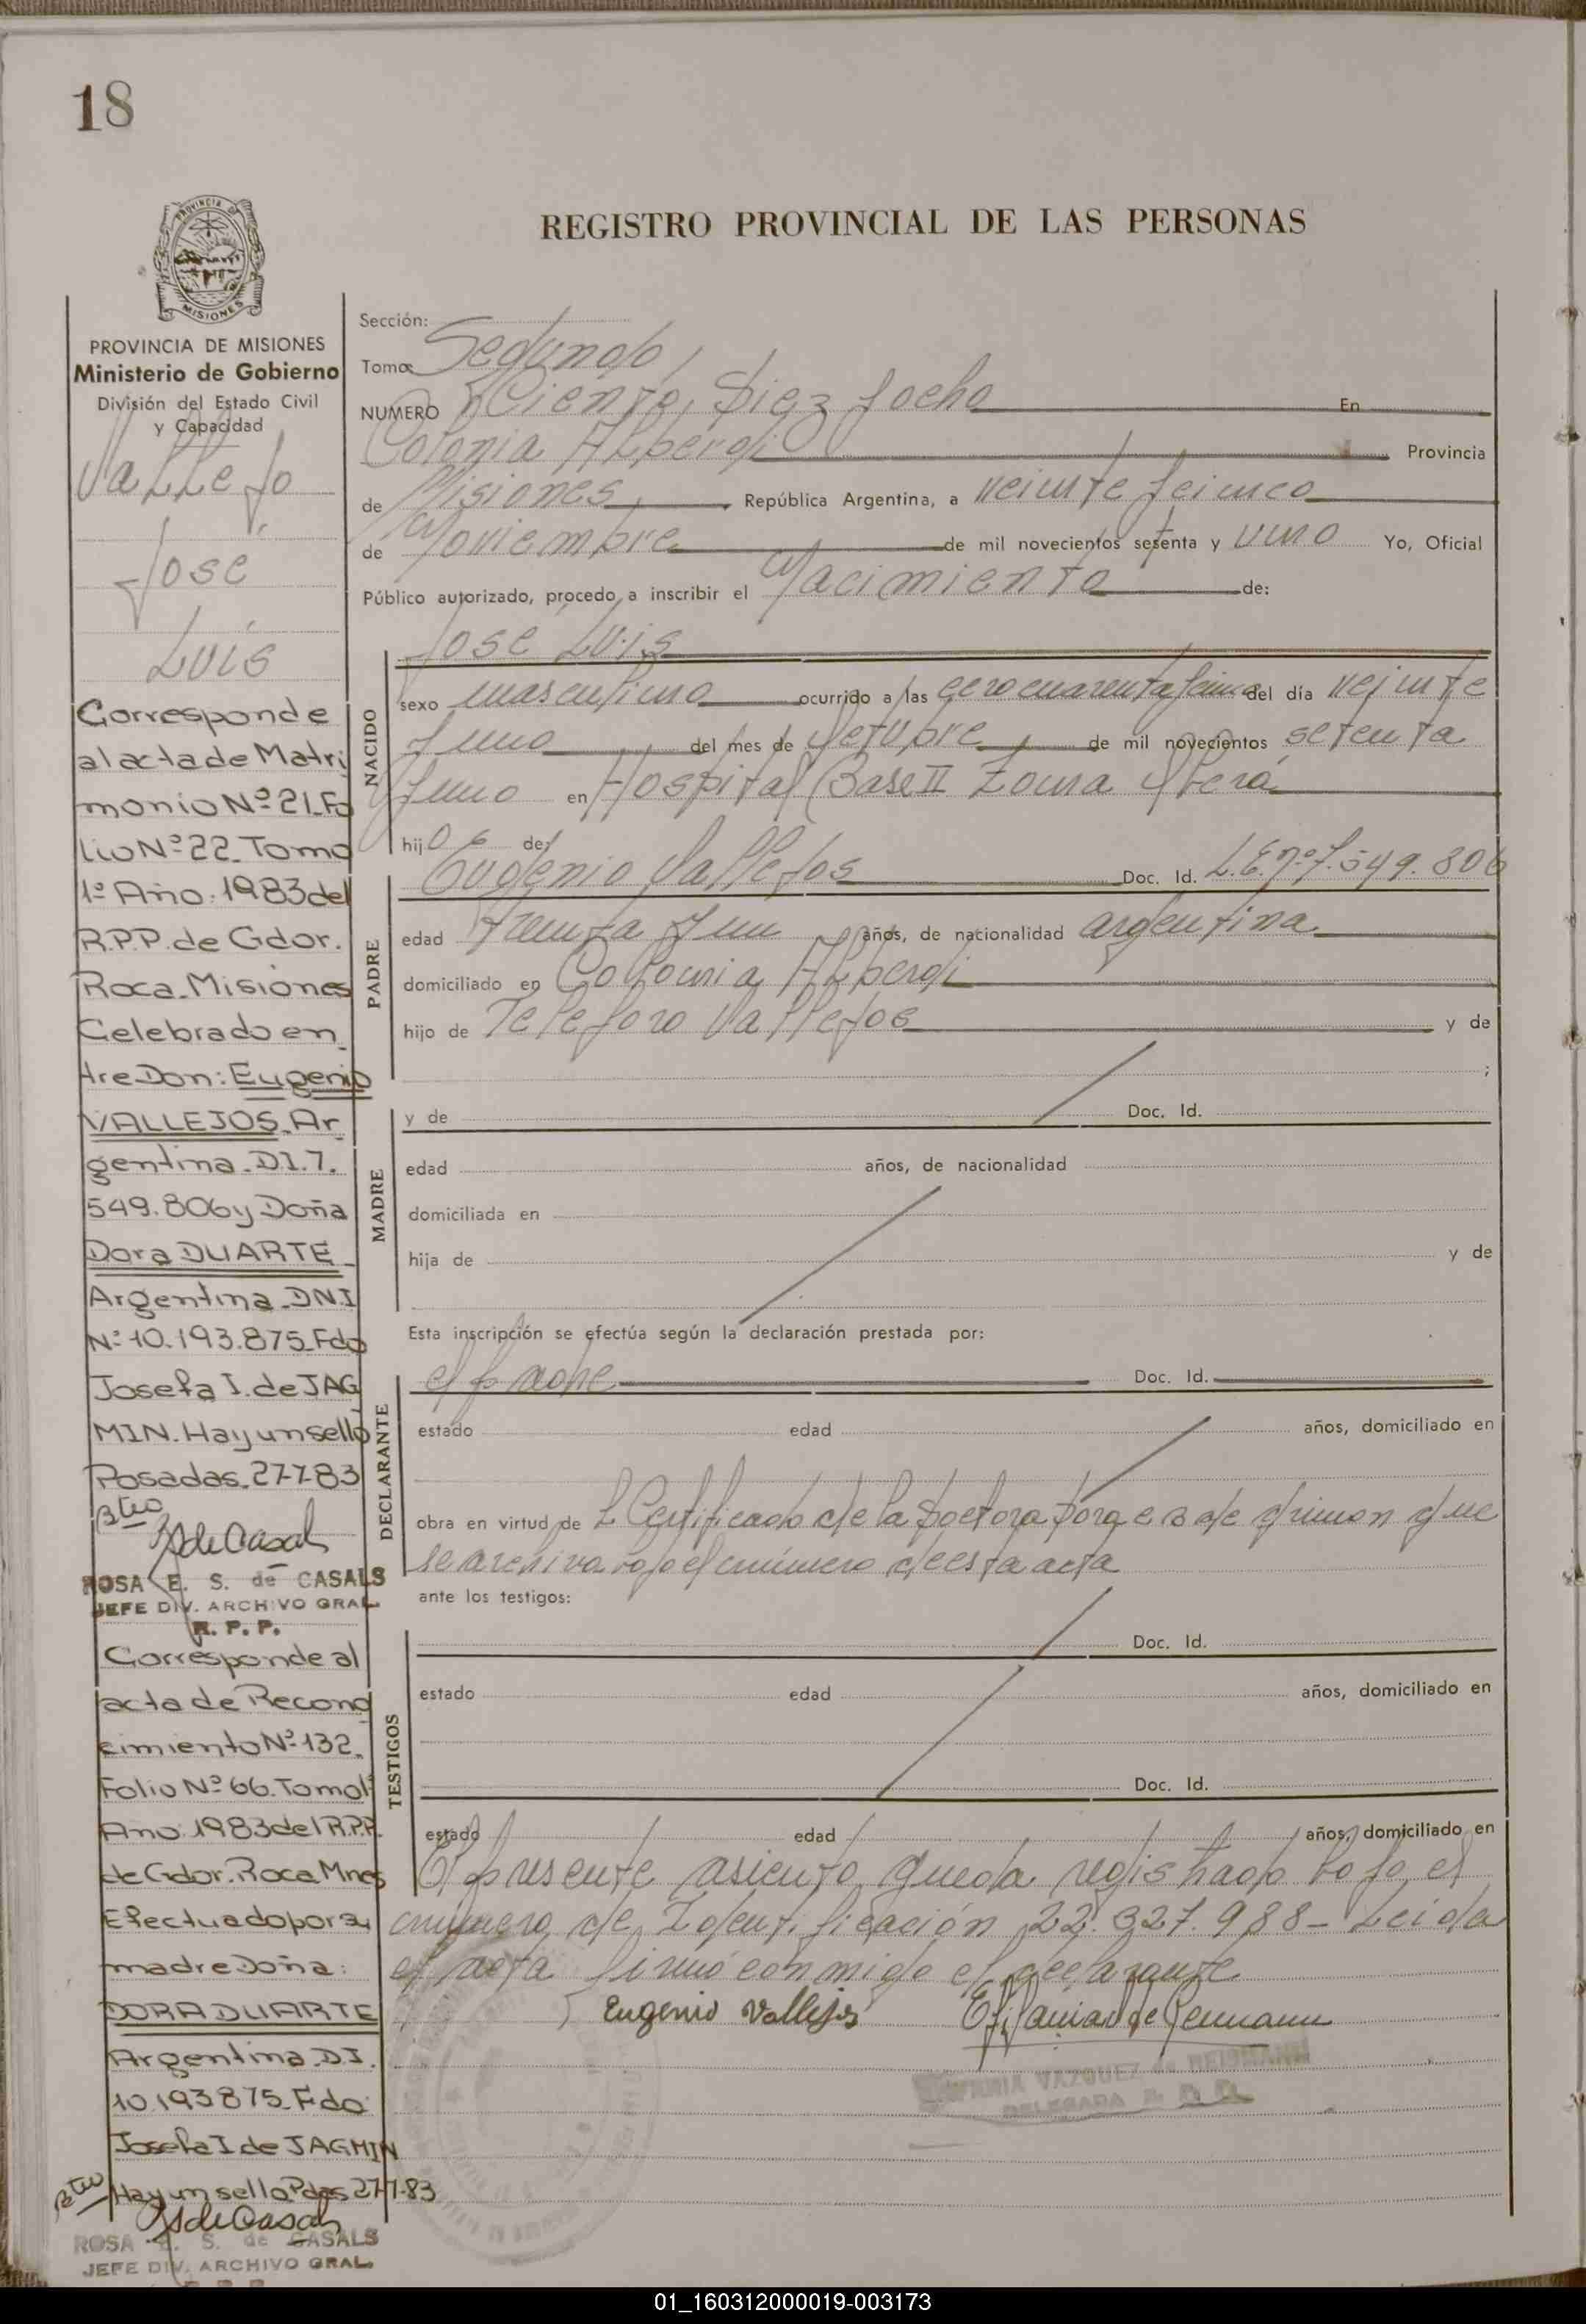 18
PROVINCIA DE
MISIONES
REGISTRO PROVINCIAL DE LAS PERSONAS
PROVINCIA DE MISIONES
Ministerio de Gobierno
División del Estado Civil
y Capacidad
Vallejo
José
Luis
Corresponde
al acta de Matri
monio Nº 21_Fo
lio Nº 22_Tomo
1º Año. 1983 del
R.P.P. de Gdor.
Roca_Misiones
Celebrado en_
tre Don: Eugenio
VALLEJOS_Ar_
gentina_D.I. 7.
549.806 y Doña
Dora DUARTE_
Argentina_DN.I
Nº 10.193.875_Fdo
Josefa I. de JAG
MIN. Hay un sello
Posadas_27-7-83
ROSA E. S. de CASALS
JEFE DIV. ARCHIVO GRAL.
R. P. P.
Corresponde al
acta de Recono
cimiento Nº 132_
Folio Nº 66. Tomo 1º
Año. 1983 del R.P.P.
de Gdor. Roca Mnes
Efectuado por su
madre Doña:
DORA DUARTE
Argentina_D.I.
10.193875_Fdo:
Josefa I de JAGMIN
Hay un sello Pdas 27-7-83
ROSA E. S. de CASALS
JEFE DIV. ARCHIVO GRAL.
Sección:
Tomo: Segundo
NUMERO Ciento Diez y ocho En
Colonia Alberdi Provincia
de Misiones, República Argentina, a veinte y cinco
de Noviembre de mil novecientos setenta y uno Yo, Oficial
Público autorizado, procedo a inscribir el Nacimiento de:
José Luis
NACIDO
sexo masculino ocurrido a las cero cuarenta y cinco del día veinte
y uno del mes de Octubre de mil novecientos setenta
y uno en Hospital Base II Zona Oberá
hijo de:
PADRE
Eugenio Vallejos Doc. Id. L.E. nº 7.549.806
edad treinta y un años, de nacionalidad argentina
domiciliado en Colonia Alberdi
hijo de Telesforo Vallejos y de
;
MADRE
y de Doc. Id.
edad años, de nacionalidad
domiciliada en
hija de y de
Esta inscripción se efectúa según la declaración prestada por:
DECLARANTE
el padre Doc. Id.
estado edad años, domiciliado en
obra en virtud de l Certificado de la Doctora de que
se archiva bajo el número de esta acta
ante los testigos:
TESTIGOS
Doc. Id.
estado edad años, domiciliado en
Doc. Id.
estado edad años, domiciliado en
El presente asiento queda registrado bajo el
número de Identificación 22.327.988- Leida
el acta firmó conmigo el declarante
Eugenio Vallejos
VAZQUEZ de
DELEGADA
01_160312000019-003173